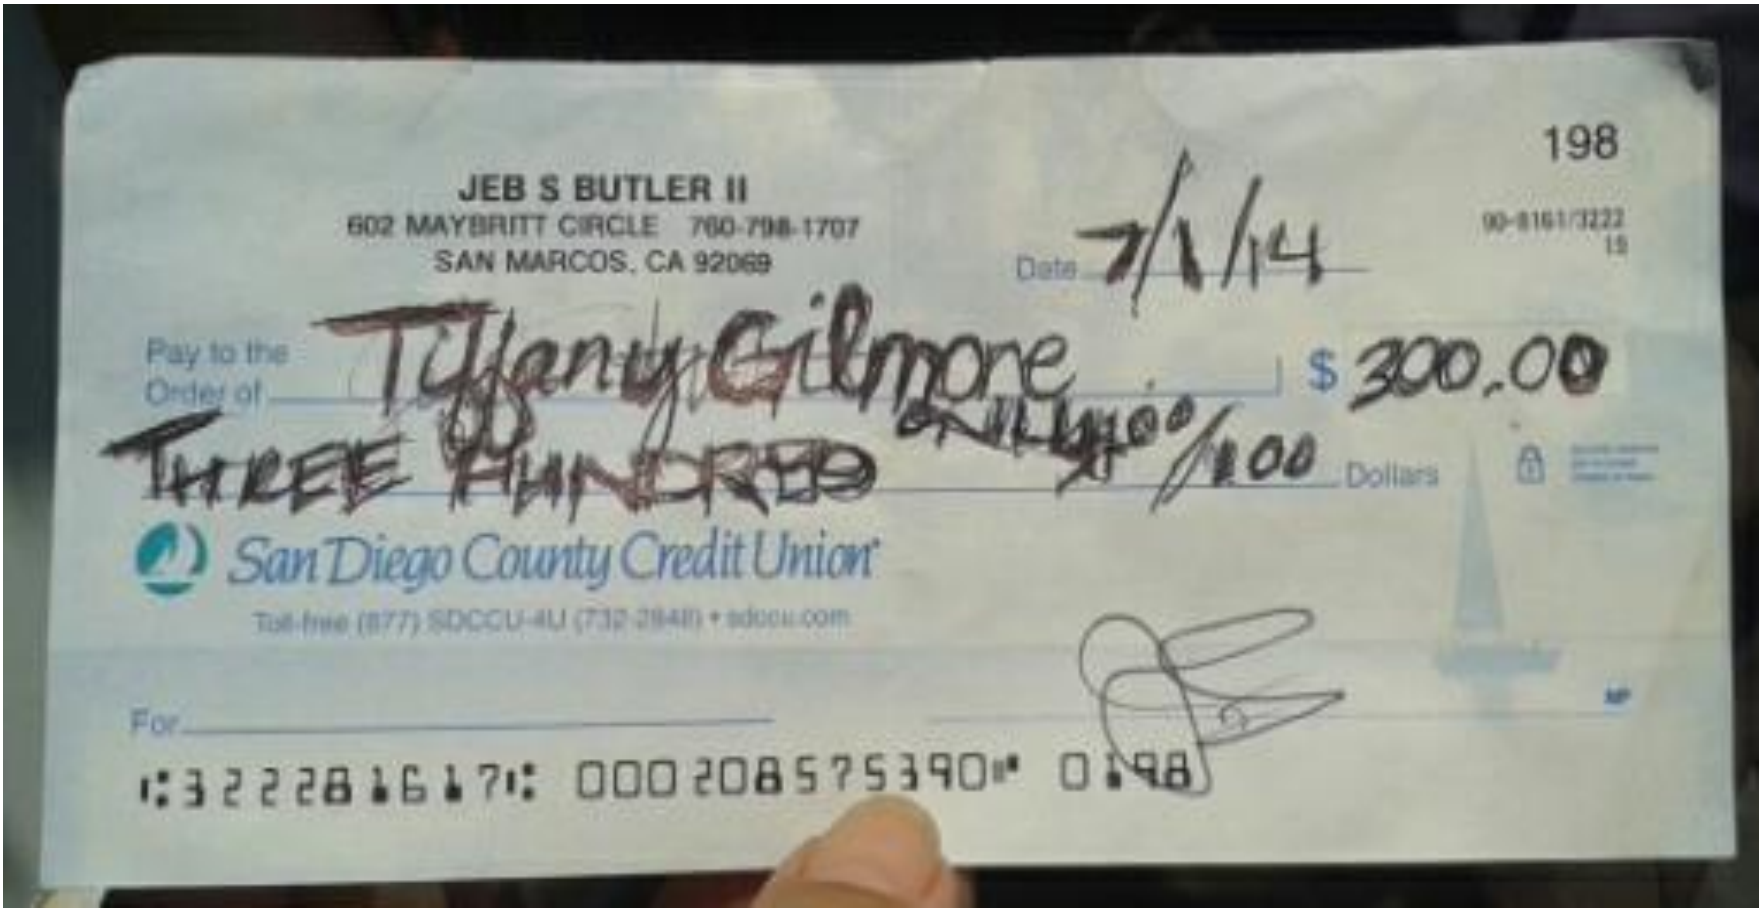 198
JEB S BUTLER II
602 MAYBRITT CIRCLE 760-798-1707
SAN MARCOS, CA 92069
90-8161/3222
Date 7/1/14
Pay to the
Order of Tiffany Gilmore $ 300.00
THREE HUNDRED ONLY 00/100 Dollars
San Diego County Credit Union
Toll-free (877) SDCCU-4U (732-2848) • sdccu.com
For
MP
⑆322281617⑆ 000208575390⑈ 0198